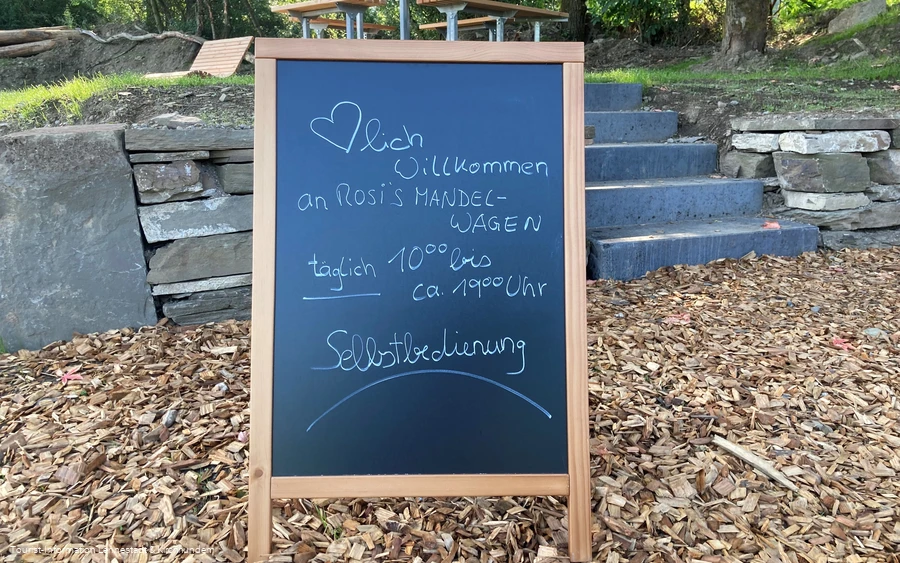 ♡lich
Willkommen
an Rosi's MANDEL-
WAGEN
täglich 10⁰⁰ bis
ca. 19⁰⁰ Uhr
Selbstbedienung
Tourist-Information Lennestadt & Kirchhundem